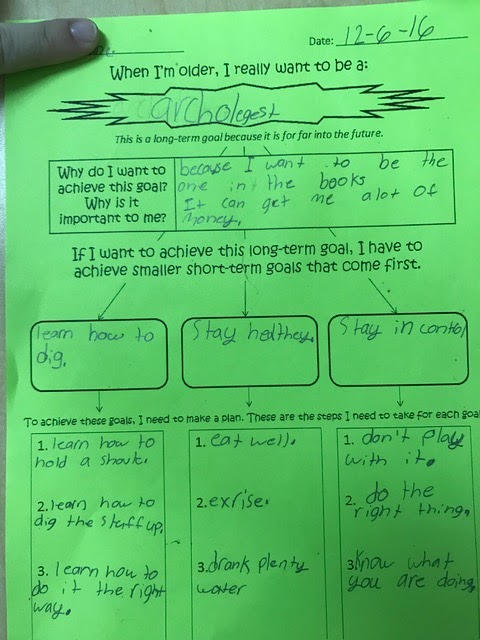 Date: 12-6-16
When I'm older, I really want to be a:
archolegest
This is a long-term goal because it is for far into the future.
Why do I want to
achieve this goal?
Why is it
important to me?
because I want to be the
one in the books
It can get me alot of
money.
If I want to achieve this long-term goal, I have to
achieve smaller short-term goals that come first.
learn how to
dig.
Stay helthey.
Stay in control
To achieve these goals, I need to make a plan. These are the steps I need to take for each goal
1. learn how to
hold a
2. learn how to
dig the stuff up.
3. learn how to
do it the right
way.
1. eat well.
2. exrise.
3. drank plenty
water
1. don't play
with it.
2. do the
right thing.
3. Know what
you are doing.